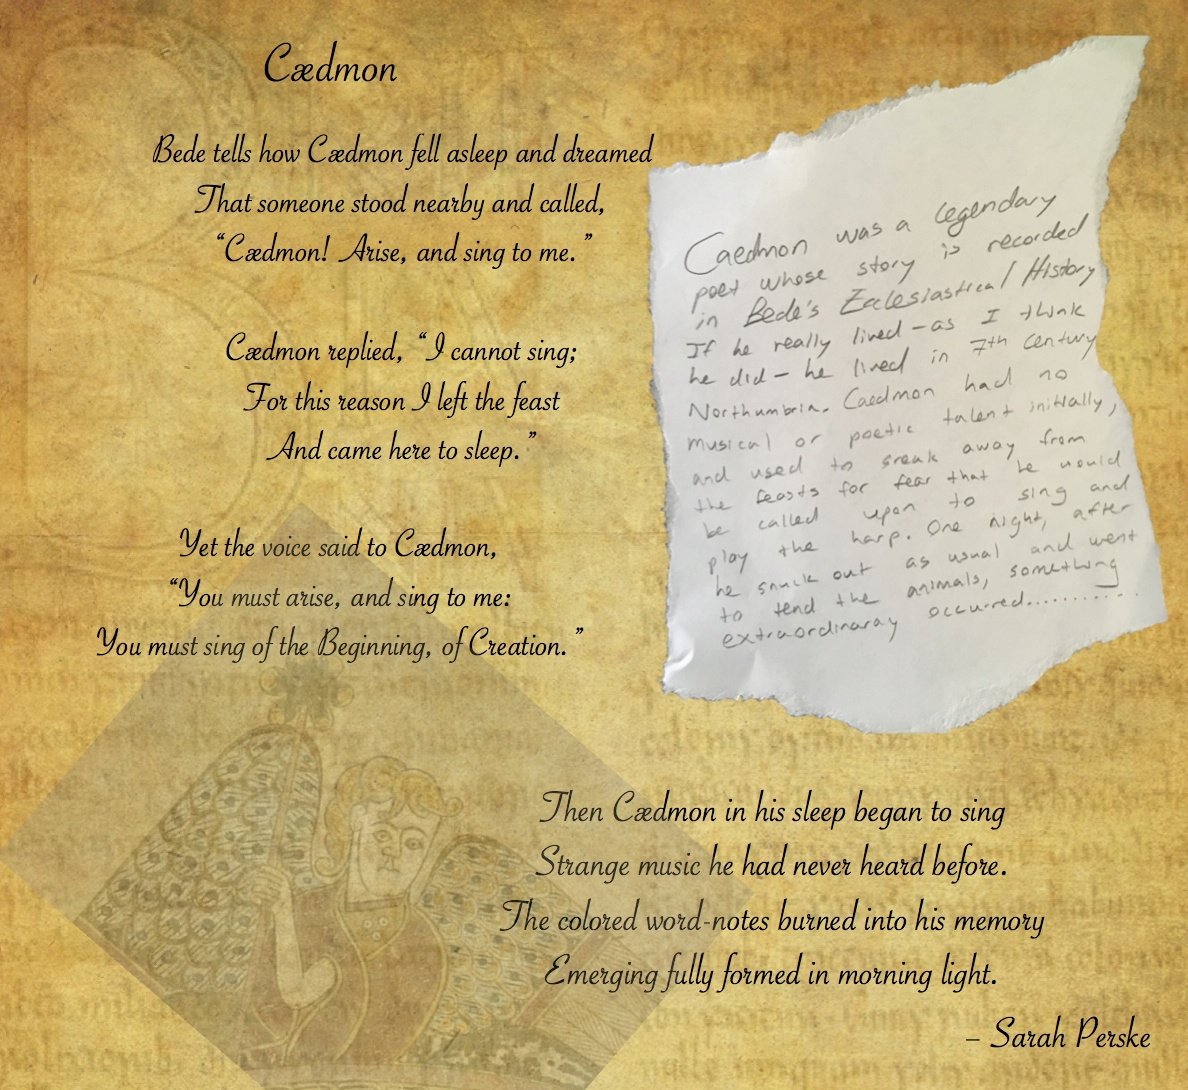 Cædmon
Bede tells how Cædmon fell asleep and dreamed
That someone stood nearby and called,
“Cædmon! Arise, and sing to me.”
Cædmon replied, “I cannot sing;
For this reason I left the feast
And came here to sleep.”
Yet the voice said to Cædmon,
“You must arise, and sing to me:
You must sing of the Beginning, of Creation.”
Caedmon was a legendary
poet whose story is recorded
in Bede's Ecclesiastical History
If he really lived – as I think
he did – he lived in 7th century
Northumbria. Caedmon had no
musical or poetic talent initially,
and used to sneak away from
the feasts for fear that he would
be called upon to sing and
play the harp. One night, after
he snuck out as usual and went
to tend the animals, something
extraordinaray occurred...........
Then Cædmon in his sleep began to sing
Strange music he had never heard before.
The colored word-notes burned into his memory
Emerging fully formed in morning light.
– Sarah Perske